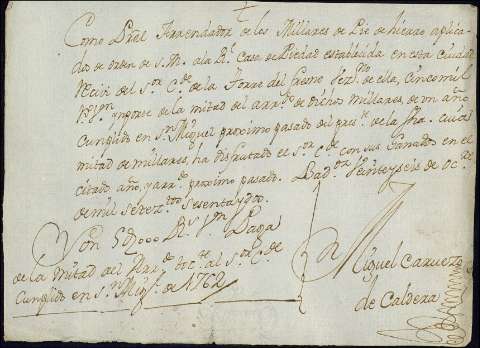 Como Prâl Arrendador de los Millares de Pie de hierro aplica-
dos de orden de S.M. ala Rl. Casa de Piedad establezida en esta Ciudad
Reciví del Sor. Cde. de la Torre del Fresno vezno. de ella, Cinco mil
Rs. Vn. ynporte de la mitad del arrto. de dichos Millares, de un año
Cumplido en Sn. Miguel proximo pasado del preste. de la fha. cuia
mitad de millares, ha disfrutado el Sor. Cde. con sus Ganados en el
citado año, y arrdo. proximo pasado. Badxoz Veinte y seis de Ocre.
de mil Setezos. Sesenta y dos.
Son 5U000 Rs. Vn. Paga
de la mitad del Arrdo.
al Sor. Cde.
Cumplido en Sn. Migl. de 1762
Miguel
de Caldera